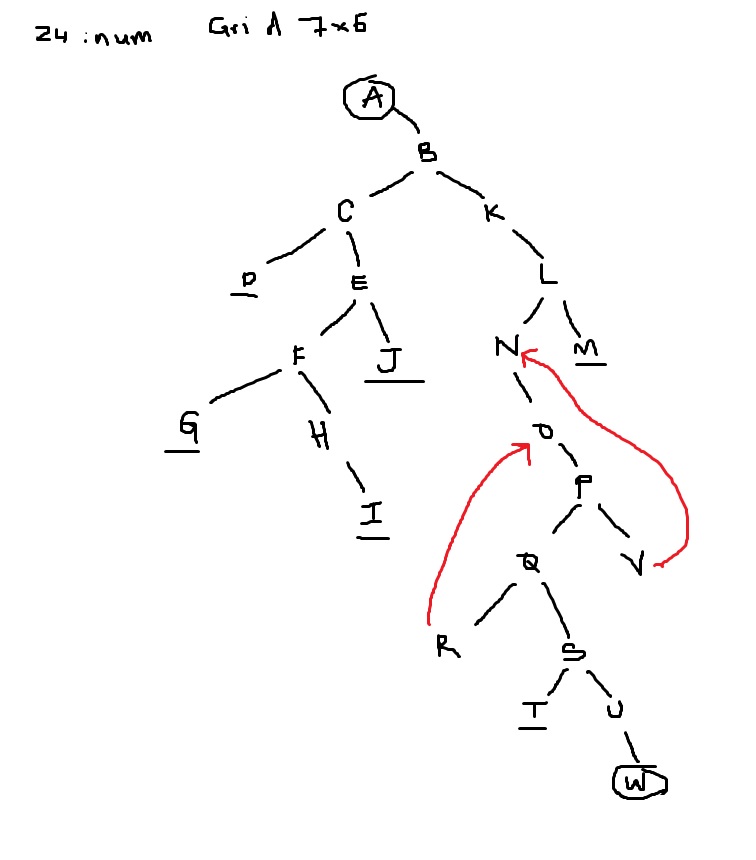 24 inum Grid 7x6
A
B
C K
D E L
F J N M
G H O
I P
Q V
R S
T U
W